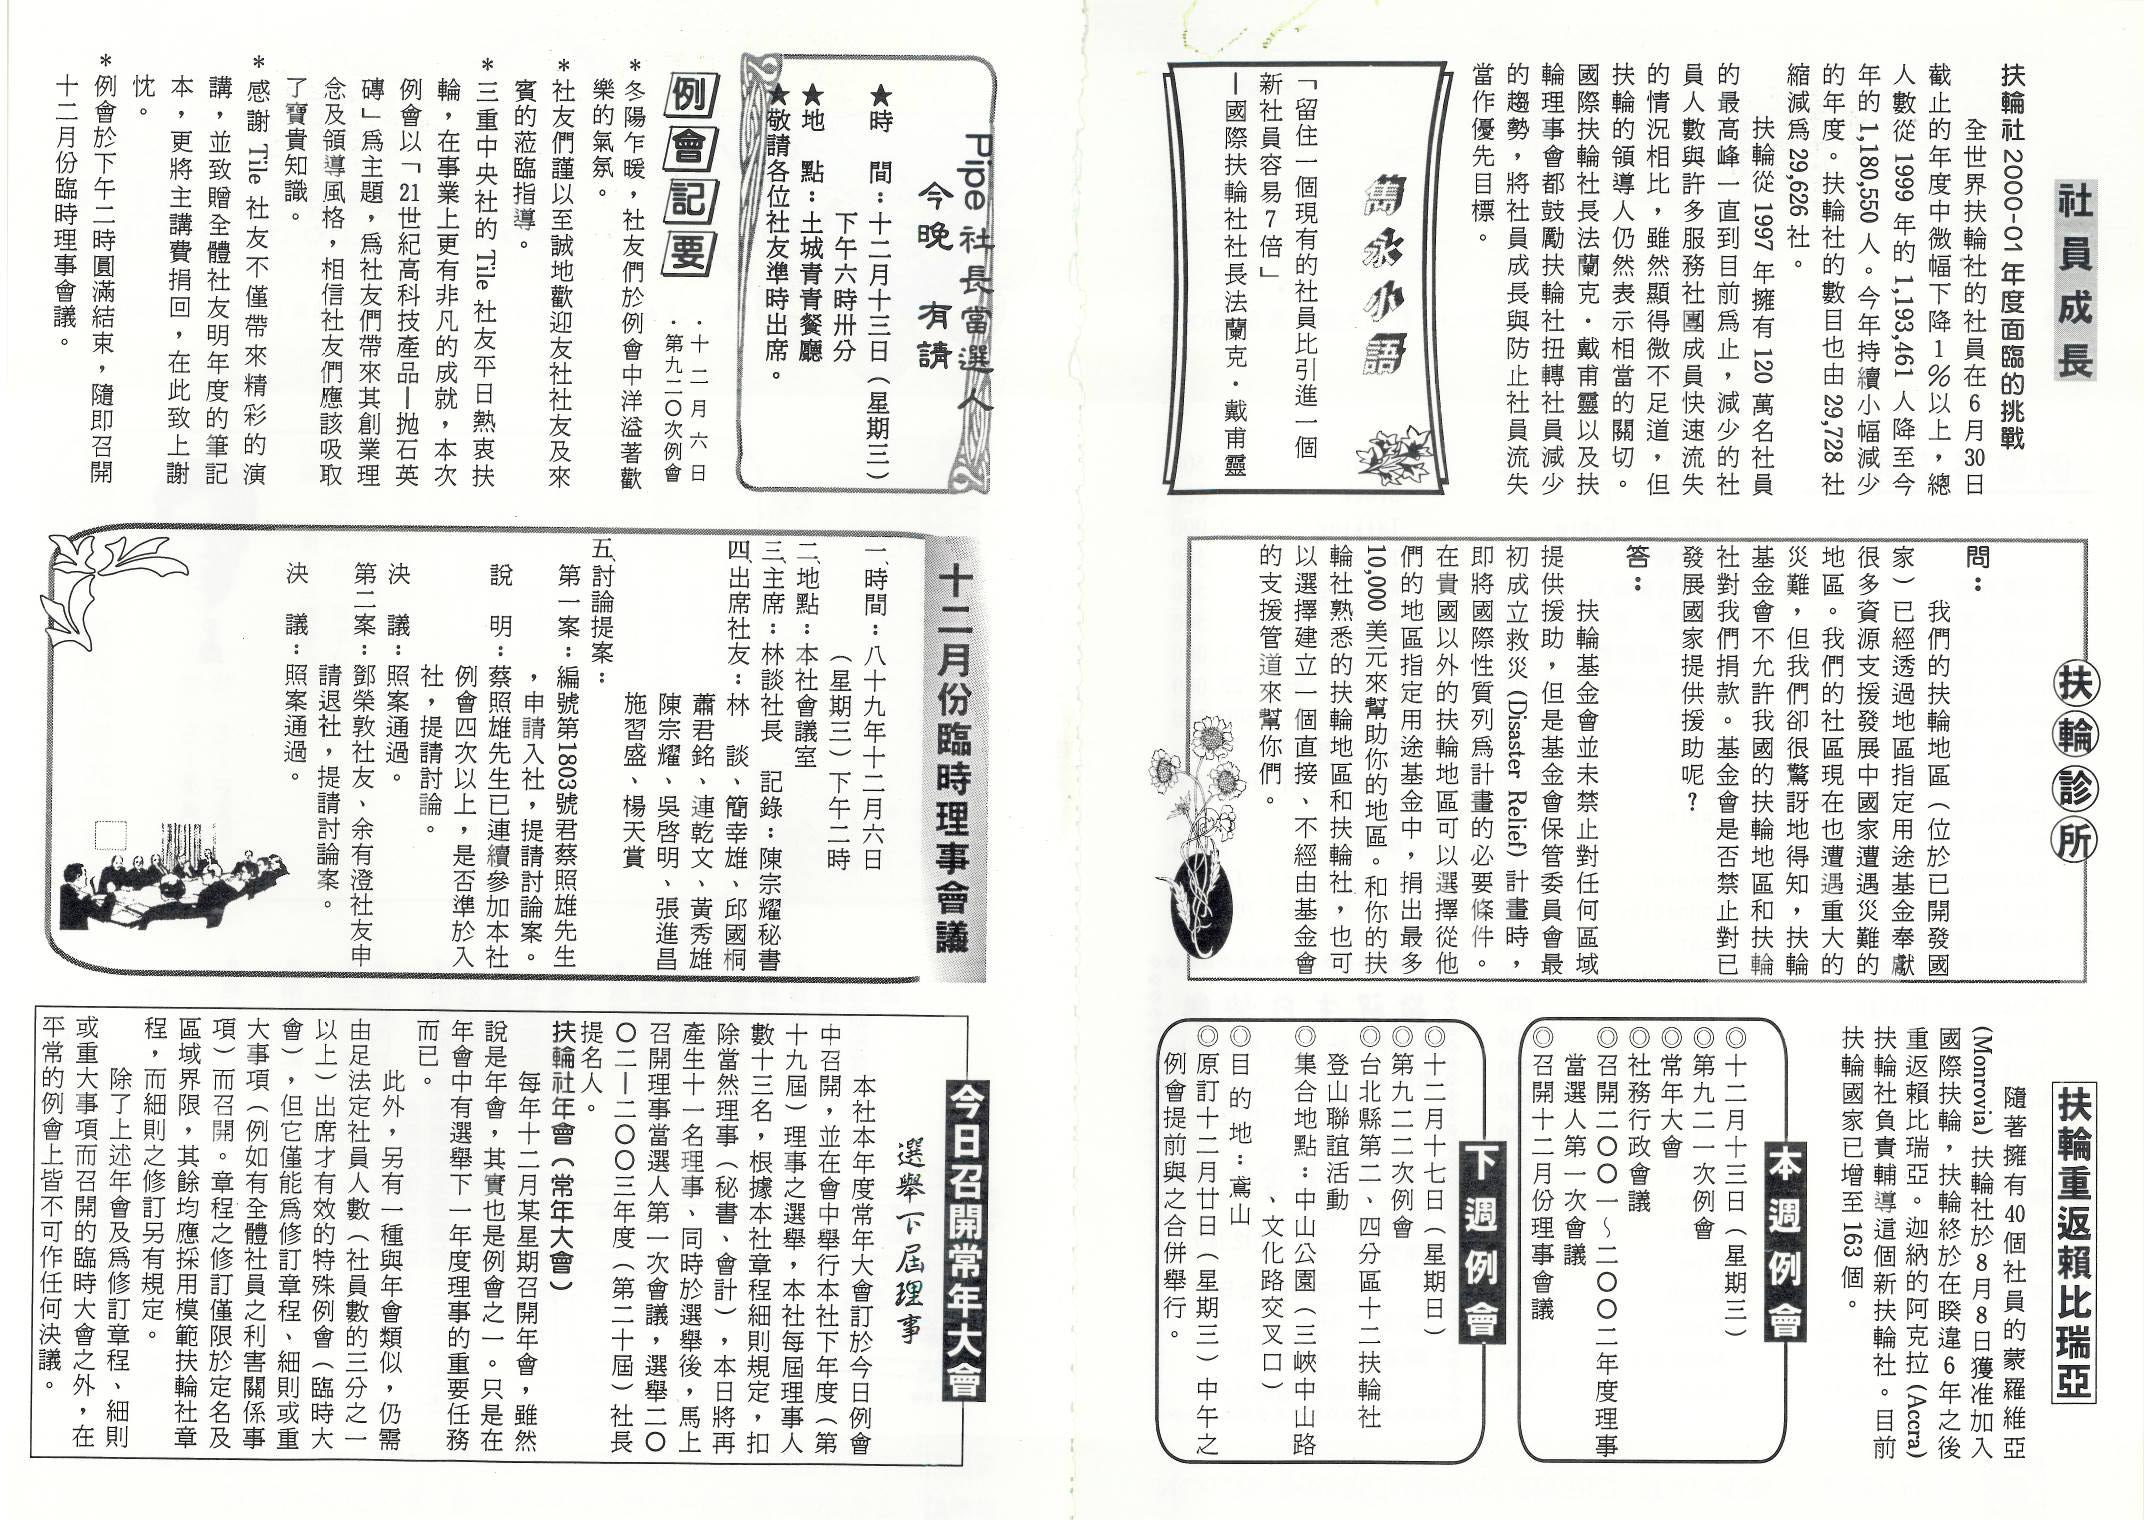 社員成長
扶輪社 2000-01 年度面臨的挑戰
全世界扶輪社的社員在 6 月 30 日
截止的年度中微幅下降 1％以上，總
人數從 1999 年的 1,193,461 人降至今
年的 1,180,550 人。今年持續小幅減少
的年度。扶輪社的數目也由 29,728 社
縮減爲 29,626 社。
扶輪從 1997 年擁有 120 萬名社員
的最高峰一直到目前爲止，減少的社
員人數與許多服務社團成員快速流失
的情況相比，雖然顯得微不足道，但
扶輪的領導人仍然表示相當的關切。
國際扶輪社長法蘭克．戴甫靈以及扶
輪理事會都鼓勵扶輪社扭轉社員減少
的趨勢，將社員成長與防止社員流失
當作優先目標。
萬永小語
「留住一個現有的社員比引進一個
新社員容易 7 倍」
—國際扶輪社社長法蘭克．戴甫靈
扶輪診所
問：
我們的扶輪地區（位於已開發國
家）已經透過地區指定用途基金奉獻
很多資源支援發展中國家遭遇災難的
地區。我們的社區現在也遭遇重大的
災難，但我們卻很驚訝地得知，扶輪
基金會不允許我國的扶輪地區和扶輪
社對我們捐款。基金會是否禁止對已
發展國家提供援助呢？
答：
扶輪基金會並未禁止對任何區域
提供援助，但是基金會保管委員會最
初成立救災 (Disaster Relief) 計畫時，
即將國際性質列爲計畫的必要條件。
在貴國以外的扶輪地區可以選擇從他
們的地區指定用途基金中，捐出最多
10,000 美元來幫助你的地區。和你的扶
輪社熟悉的扶輪地區和扶輪社，也可
以選擇建立一個直接、不經由基金會
的支援管道來幫你們。
扶輪重返賴比瑞亞
隨著擁有 40 個社員的蒙羅維亞
(Monrovia) 扶輪社於 8 月 8 日獲准加入
國際扶輪，扶輪終於在睽違 6 年之後
重返賴比瑞亞。迦納的阿克拉 (Accra)
扶輪社負責輔導這個新扶輪社。目前
扶輪國家已增至 163 個。
本週例會
◎十二月十三日（星期三）
◎第九二一次例會
◎常年大會
◎社務行政會議
◎召開二〇〇一～二〇〇二年度理事
當選人第一次會議
◎召開十二月份理事會議
下週例會
◎十二月十七日（星期日）
◎第九二二次例會
◎台北縣第二、四分區十二扶輪社
登山聯誼活動
◎集合地點：中山公園（三峽中山路
、文化路交叉口）
◎目 的 地：鳶山
◎原訂十二月廿日（星期三）中午之
例會提前與之合併舉行。
Pipe 社長當選人
今晚 有請
★時 間：十二月十三日（星期三）
下午六時卅分
★地 點：土城青青餐廳
★敬請各位社友準時出席。
例會記要
．十二月六日
．第九二〇次例會
＊冬陽乍暖，社友們於例會中洋溢著歡
樂的氣氛。
＊社友們謹以至誠地歡迎友社社友及來
賓的蒞臨指導。
＊三重中央社的 Tile 社友平日熱衷扶
輪，在事業上更有非凡的成就，本次
例會以「21世紀高科技產品—拋石英
磚」爲主題，爲社友們帶來其創業理
念及領導風格，相信社友們應該吸取
了寶貴知識。
＊感謝 Tile 社友不僅帶來精彩的演
講，並致贈全體社友明年度的筆記
本，更將主講費捐回，在此致上謝
忱。
＊例會於下午二時圓滿結束，隨即召開
十二月份臨時理事會議。
十二月份臨時理事會議
一、時間：八十九年十二月六日
（星期三）下午二時
二、地點：本社會議室
三、主席：林談社長 記錄：陳宗耀秘書
四、出席社友：林 談、簡幸雄、邱國桐
蕭君銘、連乾文、黃秀雄
陳宗耀、吳啓明、張進昌
施習盛、楊天賞
五、討論提案：
第一案：編號第1803號君蔡照雄先生
，申請入社，提請討論案。
說 明：蔡照雄先生已連續參加本社
例會四次以上，是否準於入
社，提請討論。
決 議：照案通過。
第二案：鄧榮敦社友、余有澄社友申
請退社，提請討論案。
決 議：照案通過。
今日召開常年大會
選舉下屆理事
本社本年度常年大會訂於今日例會
中召開，並在會中舉行本社下年度（第
十九屆）理事之選舉，本社每屆理事人
數十三名，根據本社章程細則規定，扣
除當然理事（秘書、會計），本日將再
產生十一名理事、同時於選舉後，馬上
召開理事當選人第一次會議，選舉二〇
〇二—二〇〇三年度（第二十屆）社長
提名人。
扶輪社年會（常年大會）
每年十二月某星期召開年會，雖然
說是年會，其實也是例會之一。只是在
年會中有選舉下一年度理事的重要任務
而已。
此外，另有一種與年會類似，仍需
由足法定社員人數（社員數的三分之一
以上）出席才有效的特殊例會（臨時大
會），但它僅能爲修訂章程、細則或重
大事項（例如有全體社員之利害關係事
項）而召開。章程之修訂僅限於定名及
區域界限，其餘均應採用模範扶輪社章
程，而細則之修訂另有規定。
除了上述年會及爲修訂章程、細則
或重大事項而召開的臨時大會之外，在
平常的例會上皆不可作任何決議。